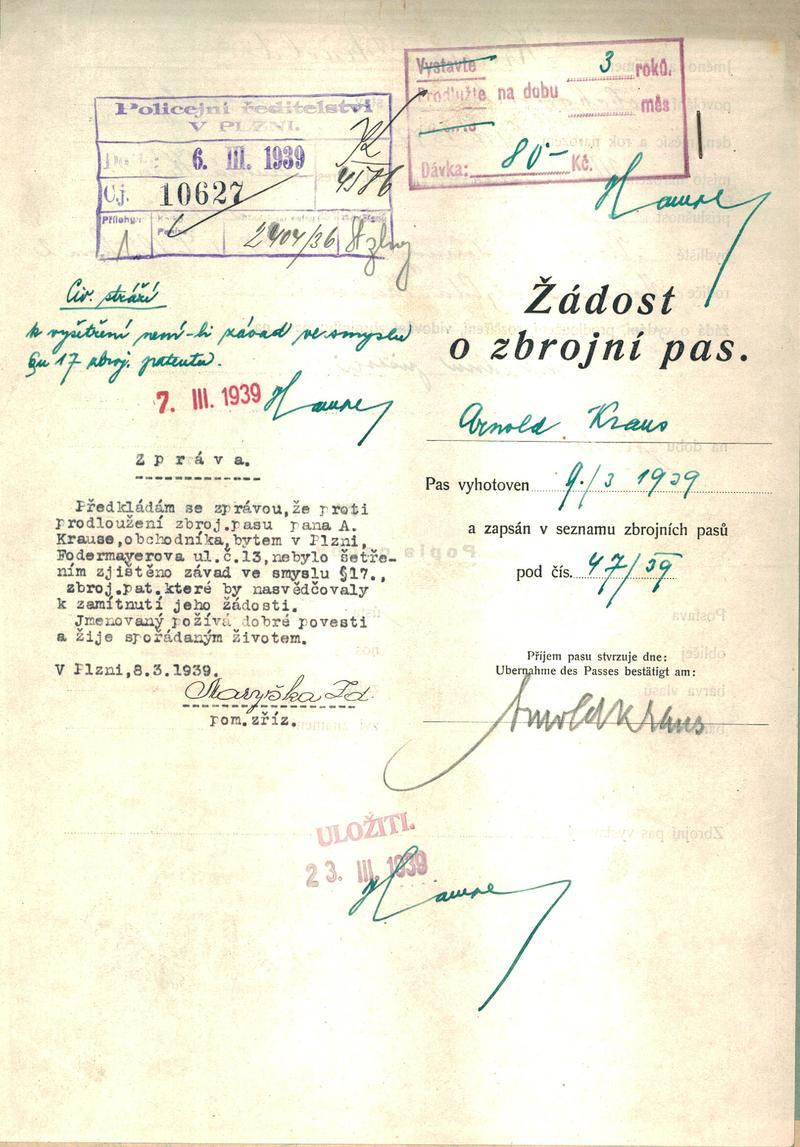 Policejní ředitelství
V PLZNI.
6. III. 1939
Čj. 10627
Přílohy:
1
2404/36
Vystavte 3 roků.
Prodlužte na dobu měs
Dávka: 80- Kč.
Civ. stráži
k vyšetření není-li závad ve smyslu
§u 17 zbroj. patentu.
7. III. 1939
Zpráva.
Předkládám se zprávou,že proti
prodloužení zbroj.pasu pana A.
Krause,obchodníka,bytem v Plzni,
Fodermayerova ul.č.13,nebylo šetře-
ním zjištěno závad ve smyslu §17.,
zbroj.pat.které by nasvědčovaly
k zamítnutí jeho žádosti.
Jmenovaný požívá dobré povesti
a žije spořádaným životem.
V Plzni,8.3.1939.
pom.zříz.
Žádost
o zbrojní pas.
Arnold Kraus
Pas vyhotoven 9./3 1939
a zapsán v seznamu zbrojních pasů
pod čís. 47/39
Příjem pasu stvrzuje dne:
Ubernahme des Passes bestätigt am:
Arnold Kraus
ULOŽITI.
23. III. 1939